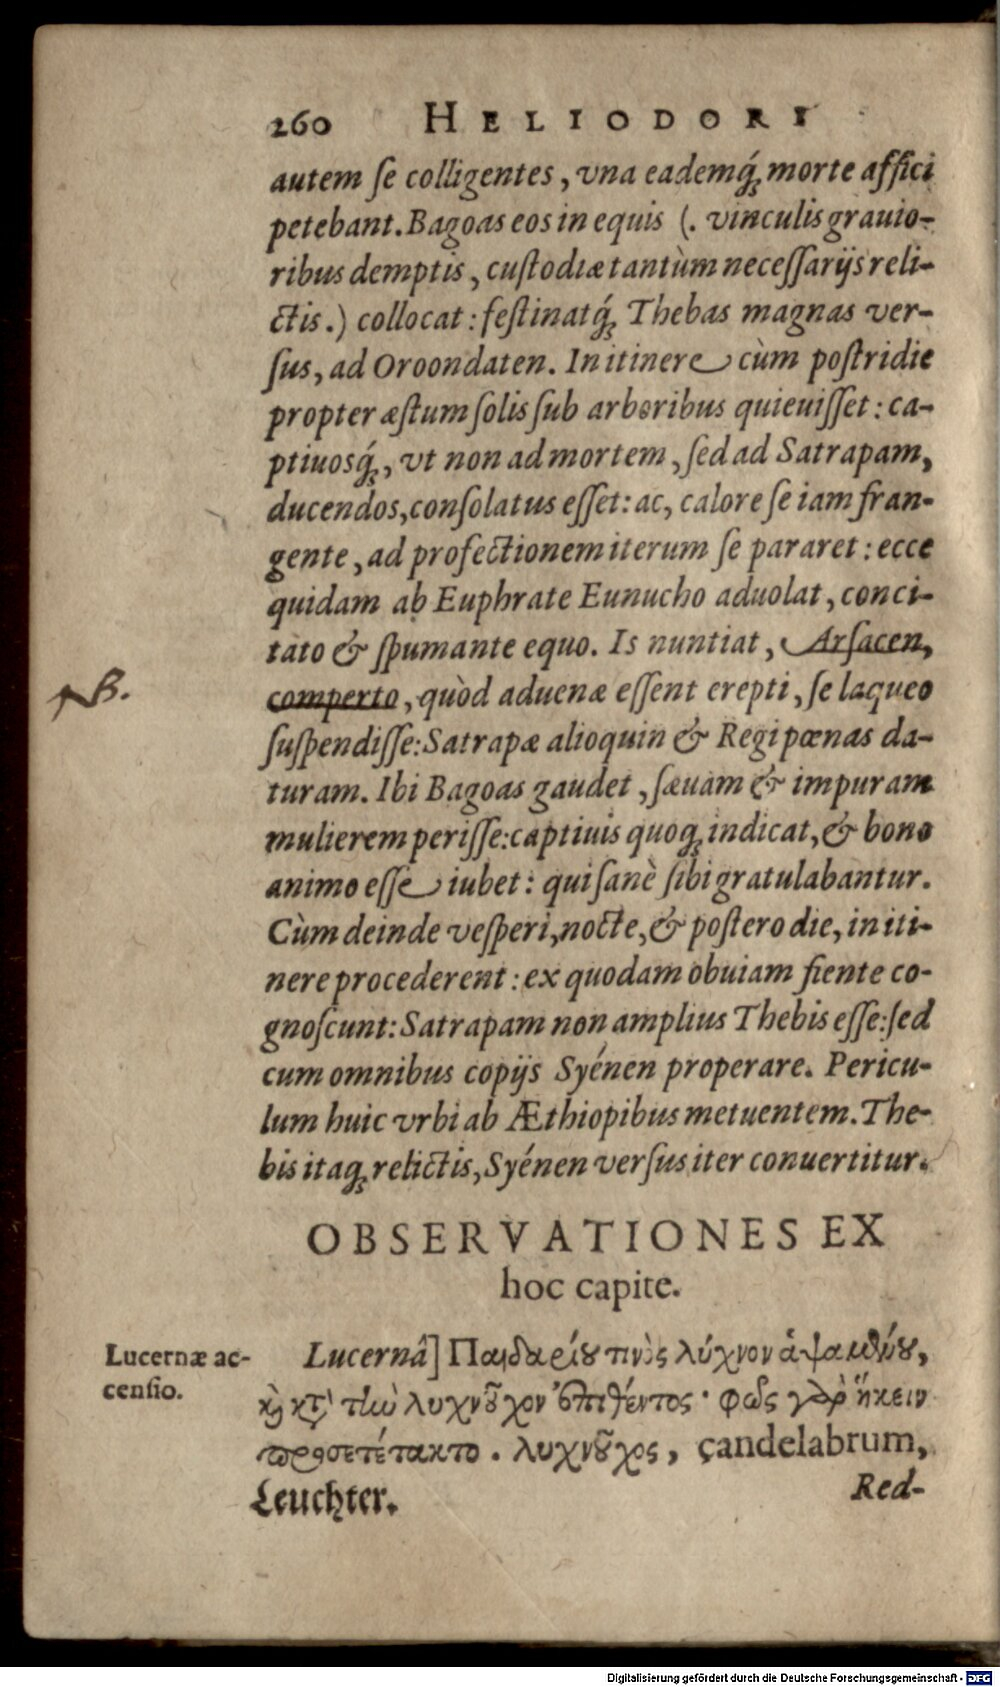 260 HELIODORI
autem ſe colligentes, vna eademq́ꝫ morte affici
petebant. Bagoas eos in equis (. vinculis grauio-
ribus demptis, cuſtodiæ tantùm neceſſarijs reli-
ctis.) collocat: feſtinatq́ꝫ Thebas magnas ver-
ſus, ad Oroondaten. In itinere cùm poſtridie
propter æſtum ſolis ſub arboribus quieuiſſet: ca-
ptiuosq́ꝫ, vt non ad mortem, ſed ad Satrapam,
ducendos, conſolatus eſſet: ac, calore ſe iam fran-
gente, ad profectionem iterum ſe pararet: ecce
quidam ab Euphrate Eunucho aduolat, conci-
tato & ſpumante equo. Is nuntiat, Arſacen,
NB.
comperto, quòd aduenæ eſſent erepti, ſe laqueo
ſuſpendiſſe: Satrapæ alioquin & Regi pœnas da-
turam. Ibi Bagoas gaudet, ſæuam & impuram
mulierem periſſe: captiuis quoqꝫ indicat, & bono
animo eſſe iubet: qui ſanè ſibi gratulabantur.
Cùm deinde veſperi, nocte, & poſtero die, in iti-
nere procederent: ex quodam obuiam fiente co-
gnoſcunt: Satrapam non amplius Thebis eſſe: ſed
cum omnibus copijs Syénen properare. Pericu-
lum huic vrbi ab Æthiopibus metuentem. The-
bis itaqꝫ relictis, Syénen verſus iter conuertitur.
OBSERVATIONES EX
hoc capite.
Lucernæ ac-
cenſio.
Lucernâ] Παιδαρίου τινὸς λύχνον ἁψαμένου,
καὶ κατὰ τὴν λυχνοῦχον ἐπιθέντος· φῶς γὰρ ἥκειν
προσετέτακτο. λυχνοῦχος, çandelabrum,
Leuchter.
Red-
Digitalisierung gefördert durch die Deutsche Forschungsgemeinschaft - DFG